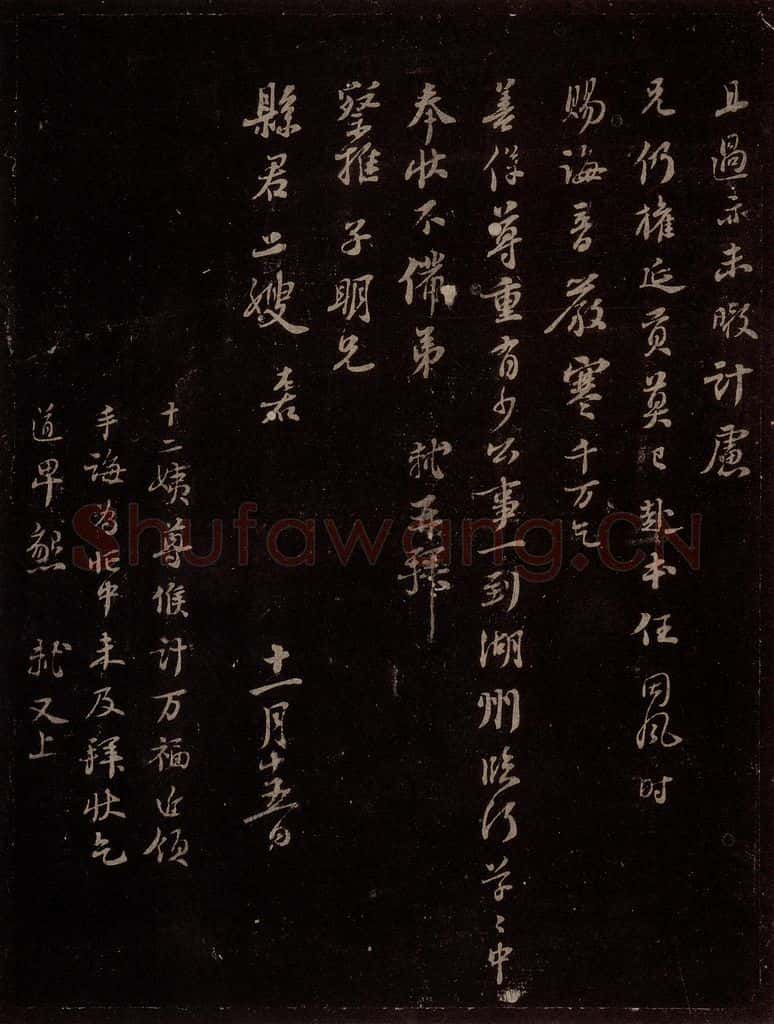 且過亦未暇計慮
兄仍權延貢莫已赴本任因风时
賜誨音嚴寒千万乞
善保尊重有少公事一到湖州临行草〻中
奉状不備弟 軾再拜
察推子明兄
縣君二嫂 左右
十一月十五日
十二姨尊候计万福近領
手誨为忙中未及拜状乞
道卑懇 軾又上
Shufawang.CN